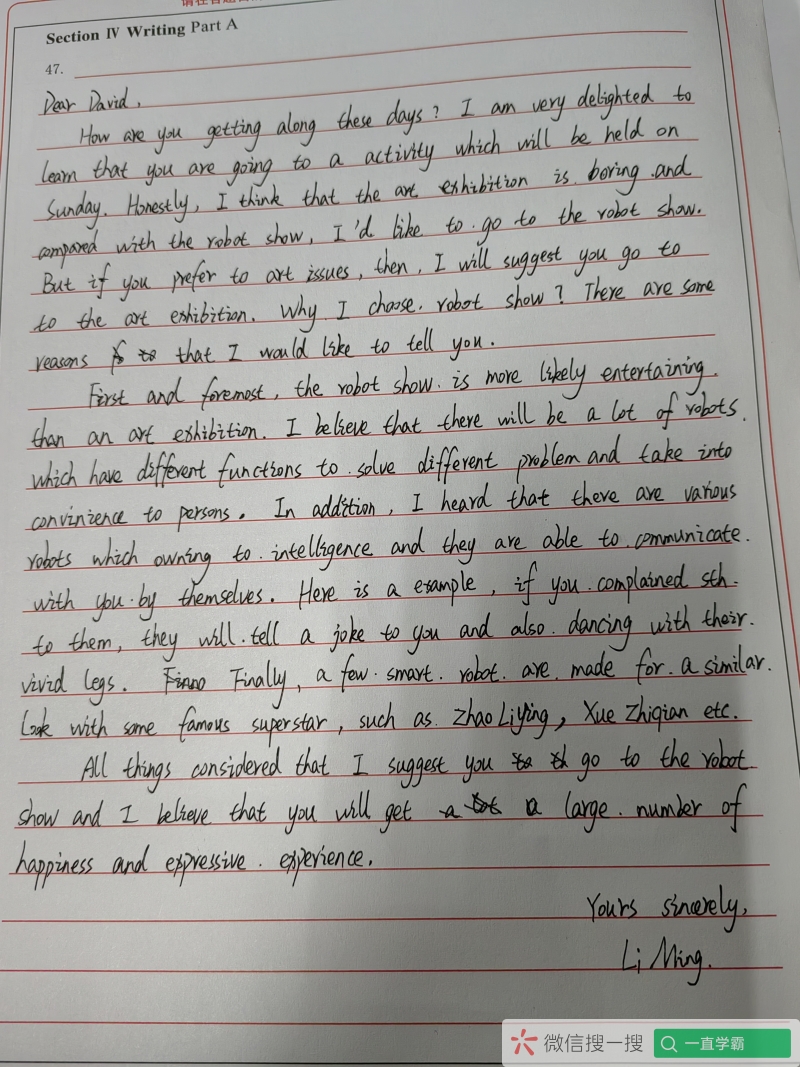 Section Ⅳ Writing Part A
47.
Dear David,
How are you getting along these days? I am very delighted to
learn that you are going to a activity which will be held on
Sunday. Honestly, I think that the art exhibition is boring and
compared with the robot show, I'd like to go to the robot show.
But if you prefer to art issues, then, I will suggest you go to
to the art exhibition. Why I choose robot show? There are some
reasons that I would like to tell you.
First and foremost, the robot show is more likely entertaining
than an art exhibition. I believe that there will be a lot of robots
which have different functions to solve different problem and take into
convinience to persons. In addition, I heard that there are various
robots which owning to intelligence and they are able to communicate
with you by themselves. Here is a example, if you complained sth
to them, they will tell a joke to you and also dancing with their
vivid legs. Finally, a few smart robot are made for a similar
Look with some famous superstar, such as Zhao Liying, Xue Zhiqian etc.
All things considered that I suggest you go to the robot
show and I believe that you will get a large number of
happiness and expressive experience.
Yours sincerely,
Li Ming.
微信搜一搜
一直学霸